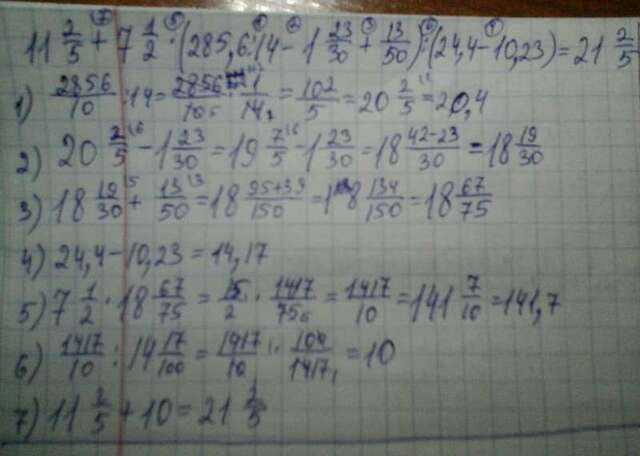 11 2/5 + 7 1/2 · (285,6 : 14 - 1 23/30 + 13/50) : (24,4 - 10,23) = 21 2/5
1) 2856/10 : 14 = 2856/10 · 1/14 = 102/5 = 20 2/5 = 20,4
2) 20 2/5 - 1 23/30 = 19 7/5 - 1 23/30 = 18 42-23/30 = 18 19/30
3) 18 19/30 + 13/50 = 18 95+39/150 = 18 134/150 = 18 67/75
4) 24,4 - 10,23 = 14,17
5) 7 1/2 · 18 67/75 = 15/2 · 1417/75 = 1417/10 = 141 7/10 = 141,7
6) 1417/10 : 14 17/100 = 1417/10 · 100/1417 = 10
7) 11 2/5 + 10 = 21 2/5